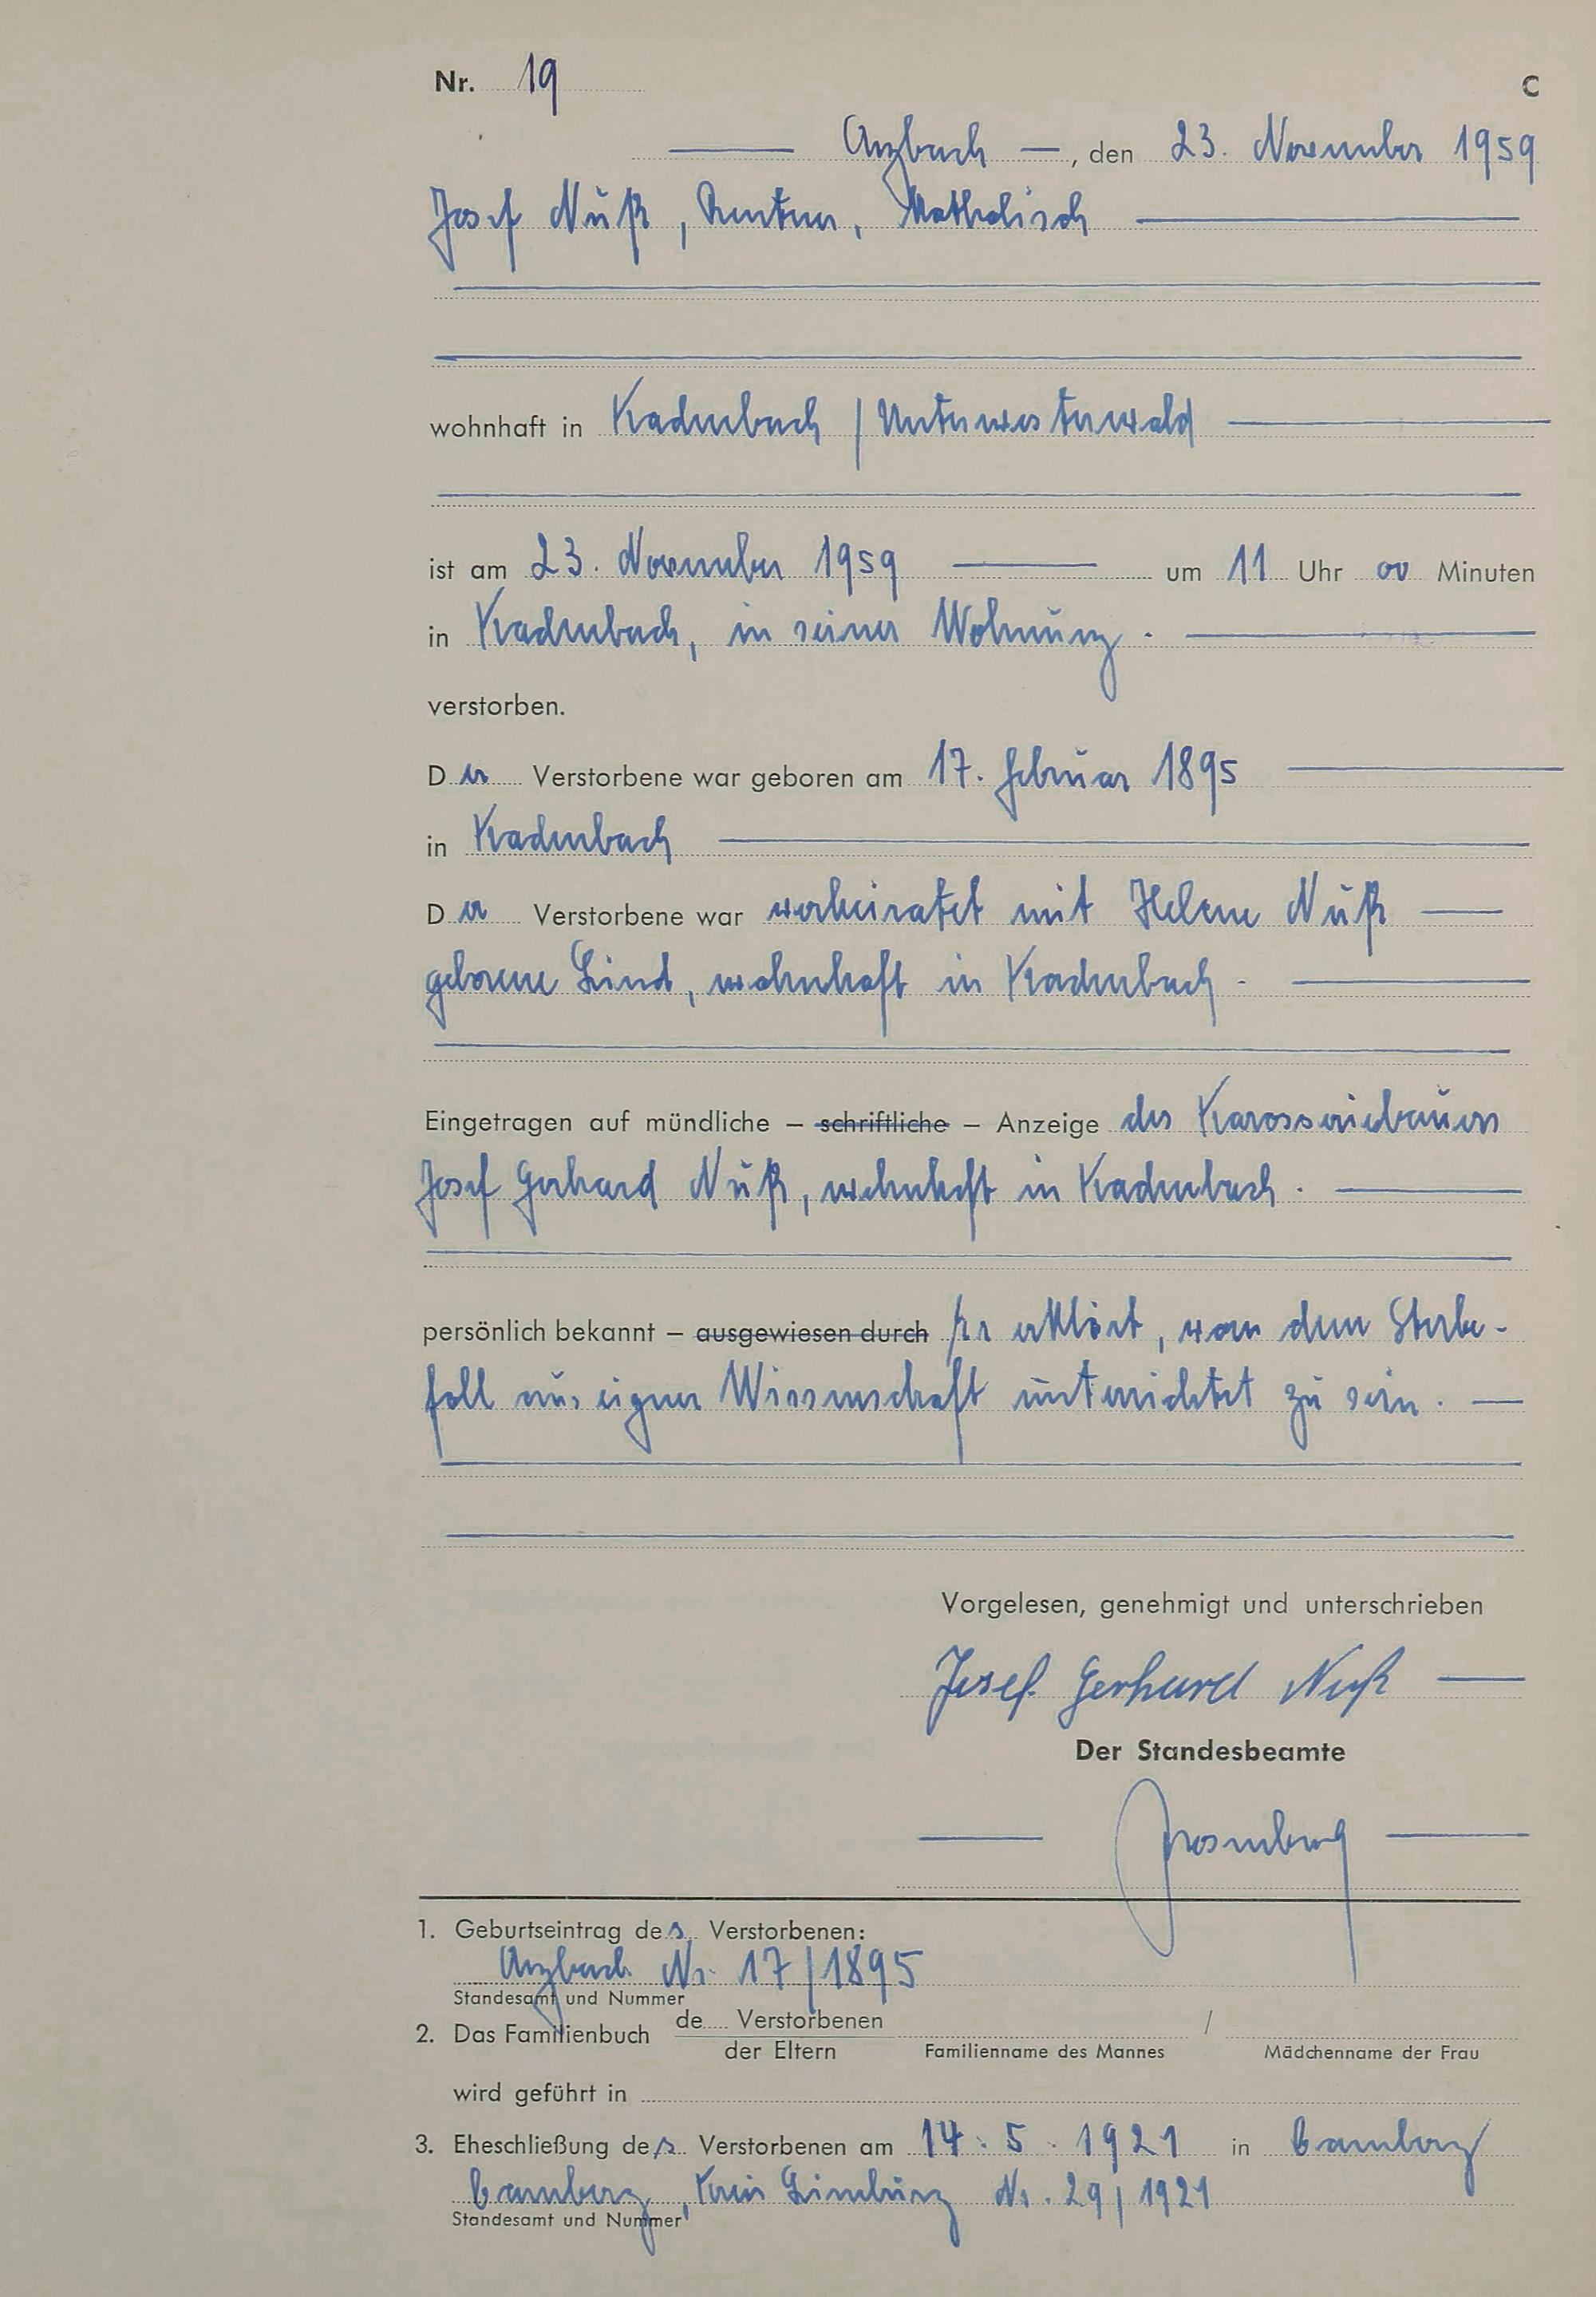 Nr. 19 C
Arzbach, den 23. November 1959
Josef Nuß, Rentner, katholisch
wohnhaft in Kadenbach / Unterwesterwald
ist am 23. November 1959 um 11 Uhr 00 Minuten
in Kadenbach, in seiner Wohnung.
verstorben.
Der Verstorbene war geboren am 17. Februar 1895
in Kadenbach
Der Verstorbene war verheiratet mit Helene Nuß
geborene Lind, wohnhaft in Kadenbach -
Eingetragen auf mündliche – schriftliche – Anzeige des Karosseriebauers
Josef Gerhard Nuß, wohnhaft in Kadenbach.
persönlich bekannt – ausgewiesen durch Er erklärt, von dem Sterbe-
fall aus eigner Wissenschaft unterrichtet zu sein.
Vorgelesen, genehmigt und unterschrieben
Josef Gerhard Nuß
Der Standesbeamte
1. Geburtseintrag des Verstorbenen:
Arzbach Nr. 17/1895
Standesamt und Nummer
de Verstorbenen
2. Das Familienbuch /
der Eltern Familienname des Mannes Mädchenname der Frau
wird geführt in
3. Eheschließung des Verstorbenen am 14. 5. 1921 in Camberg
Camberg, Kreis Limburg Nr. 29/1921
Standesamt und Nummer